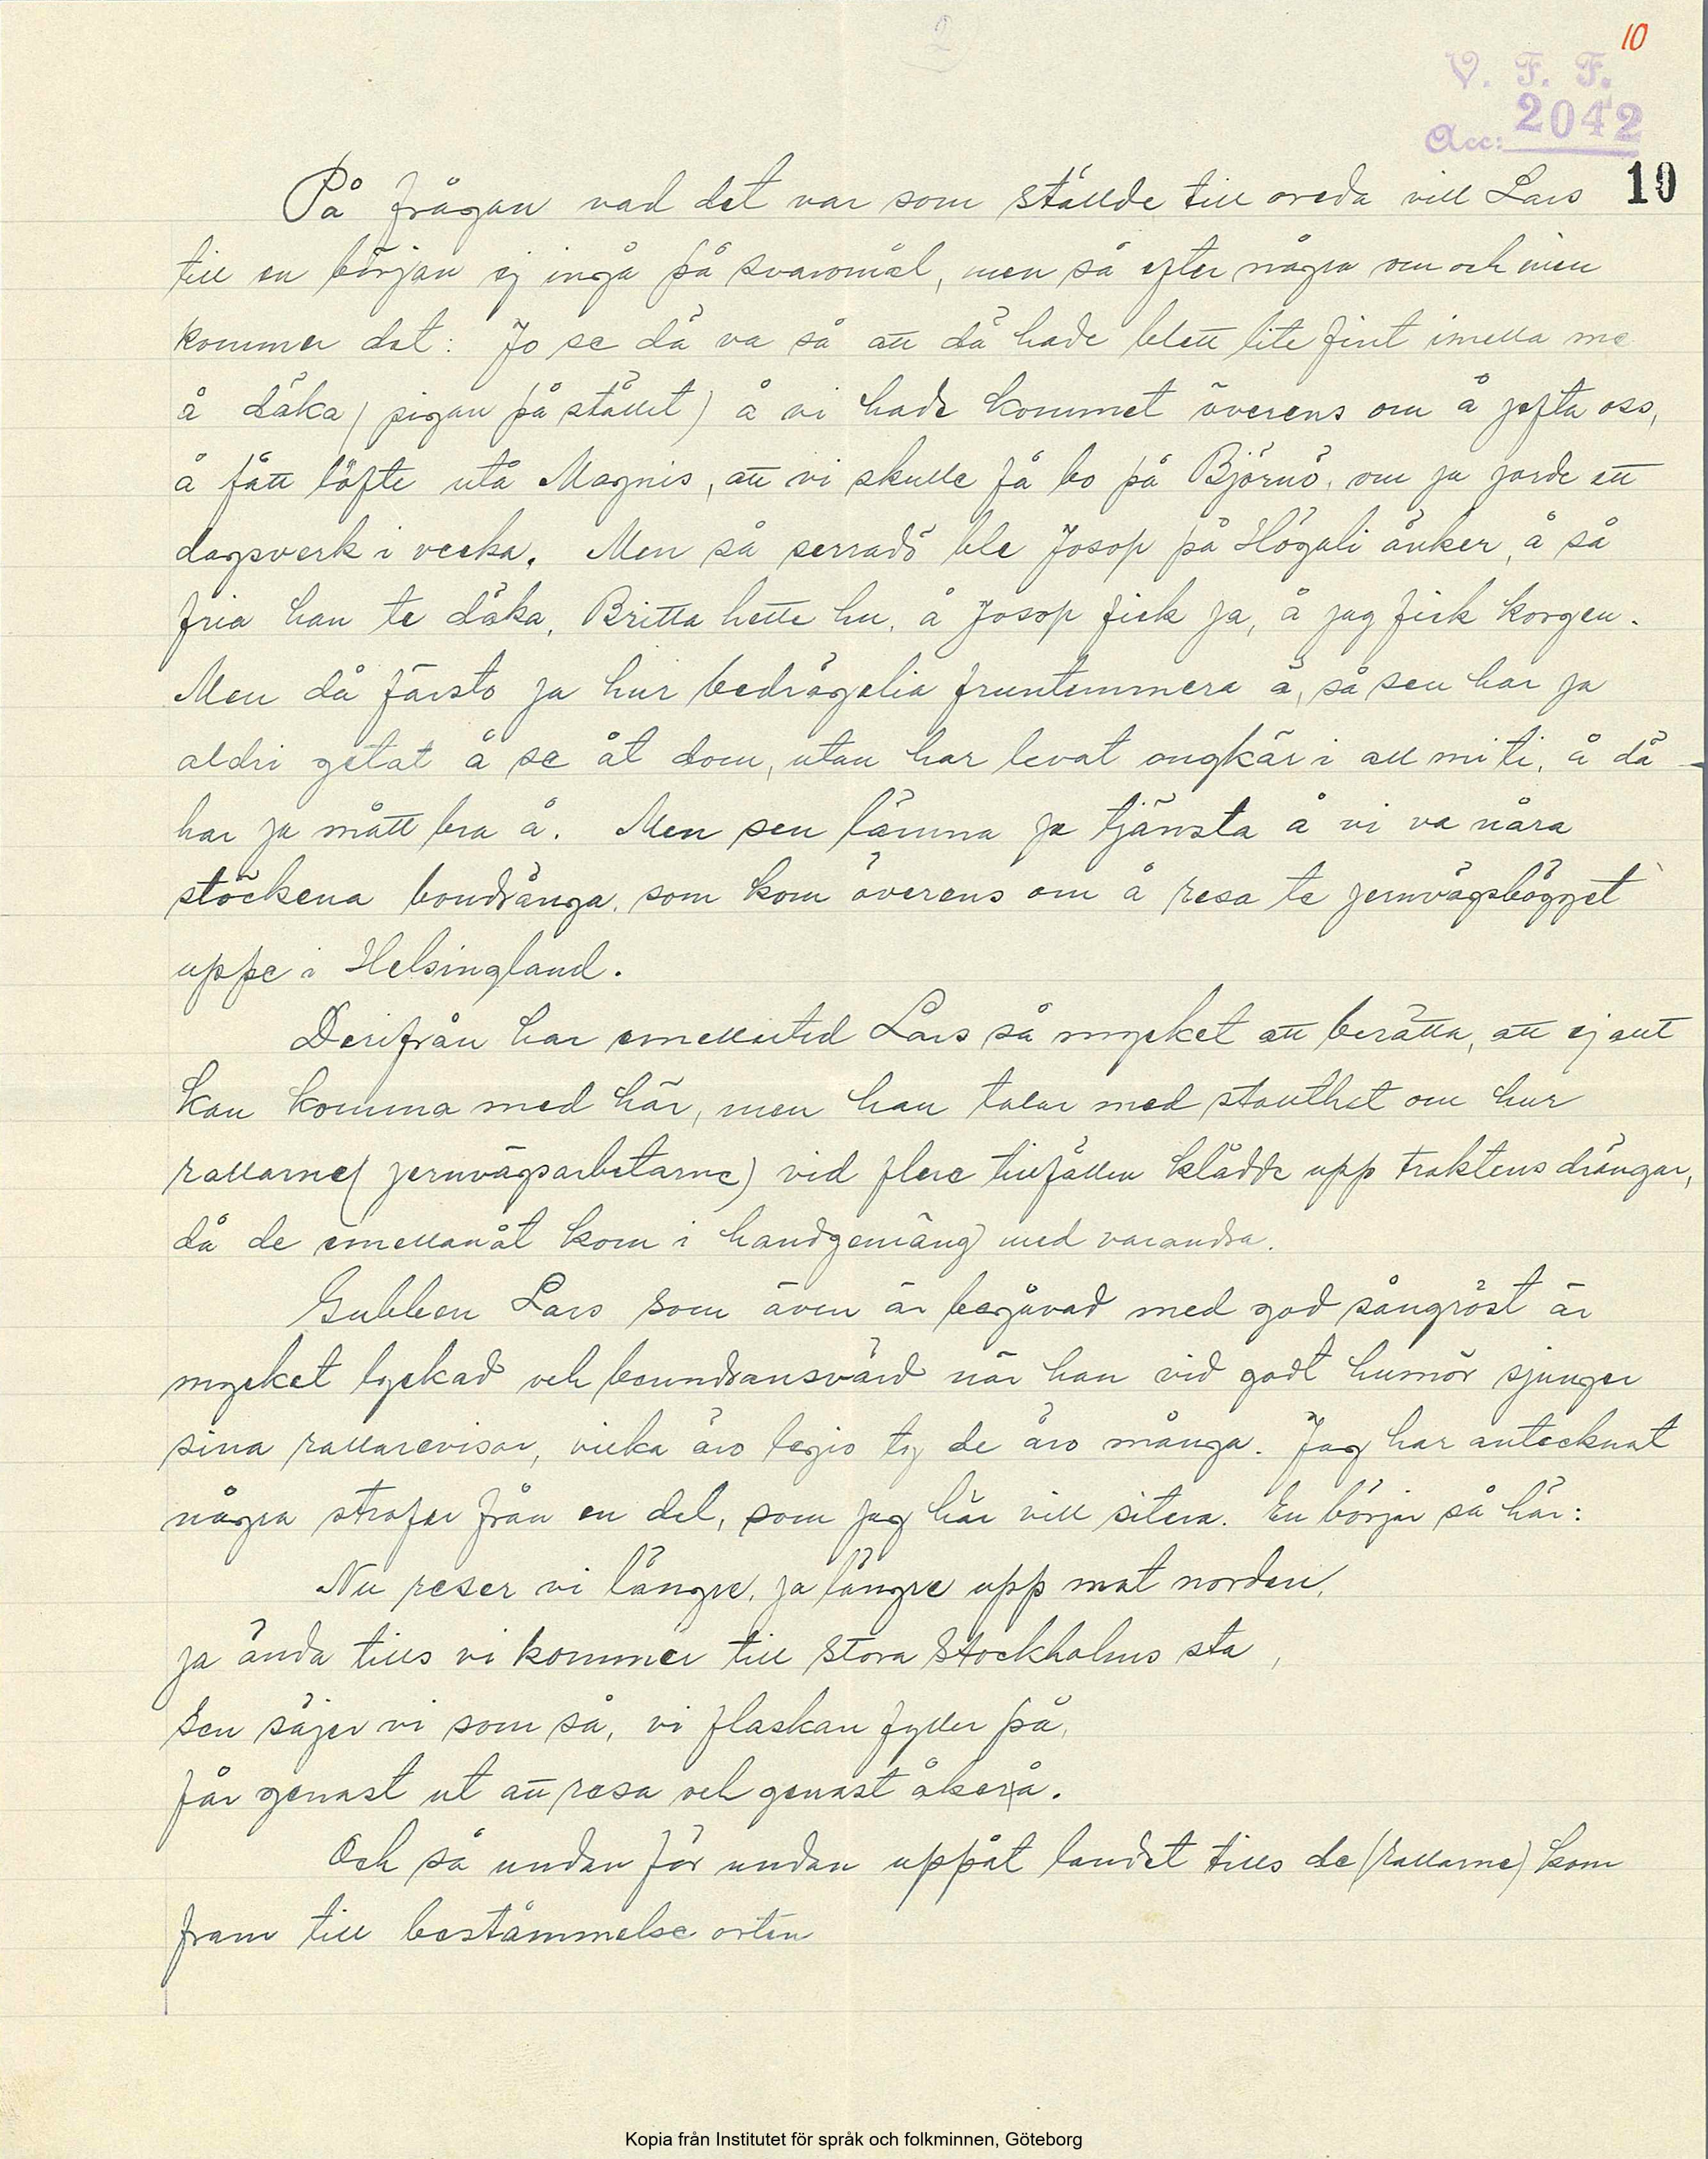 2
10
V. F. F.
Acc: 2042
10
På frågan vad det var som ställde till oreda vill Lars
till en början ej ingå på svaromål, men så efter några om och men
kommer det: Jo se dä va så att dä hade blett lite fint imella me
å däka (pigan på stället) å vi hade kommet överens om å jefta oss,
å fått löfte utå Magnis, att vi skulle få bo på Björnö, om ja jorde ett
dagsverk i veeka. Men så serradö ble Josop på Högali änker, å så
fria han te däka, Britta hette hu, å Josop fick ja, å jag fick korgen.
Men då försto ja hur bedrägelia fruntemmera ä, så sen har ja
aldri getat å se åt dom, utan har levat ongkär i all mi ti, å dä
har ja mått bra å. Men sen lämna ja tjänsta å vi va nåra
stöckena bondränga, som kom överens om å resa te jernvägsbögget
uppe i Helsingland.
Derifrån har emellertid Lars så mycket att berätta, att ej allt
kan komma med här, men han talar med stolthet om hur
rallarne (jernvägsarbetarne) vid flere tillfällen klådde upp traktens drängar,
då de emellanåt kom i handgemäng med varandra.
Gubben Lars som även är begåvad med god sångröst är
mycket lyckad och beundransvärd när han vid godt humör sjunger
sina rallarevisor, vilka äro legio ty de äro många. Jag har antecknat
några strofer från en del, som jag här vill sitera. En börjar så här:
Nu reser vi längre, ja längre upp mot norden,
ja ända tills vi kommer till stora Stockholms sta,
sen säjer vi som så, vi flaskan fyller på,
får genast ut att resa och genast åker å.
Och så undan för undan uppåt landet tills de (rallarne) kom
fram till bestämmelse orten
Kopia från Institutet för språk och folkminnen, Göteborg